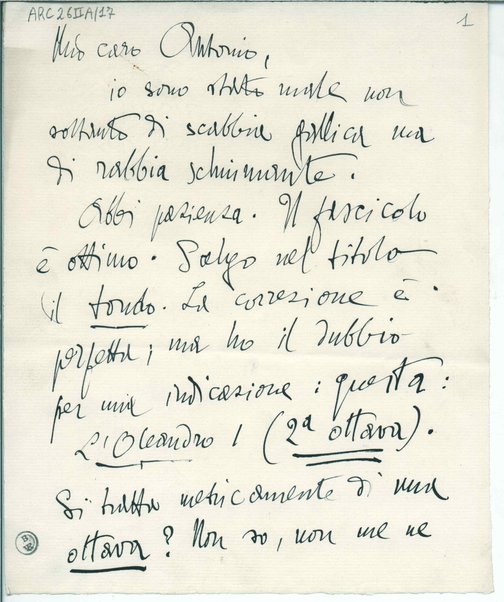 ARC 26 II A/17
1
Mio caro Antonio,
io sono stato male non
soltanto di scabbia gallica ma
di rabbia schiumante.
Abbi pazienza. Il fascicolo
è ottimo. Salgo nel titolo
il tondo. La correzione è
perfetta; ma ho il dubbio
per una indicazione: questa:
L'Oleandro I (2ª ottava).
Si tratta metricamente di una
ottava? Non so, non me ne